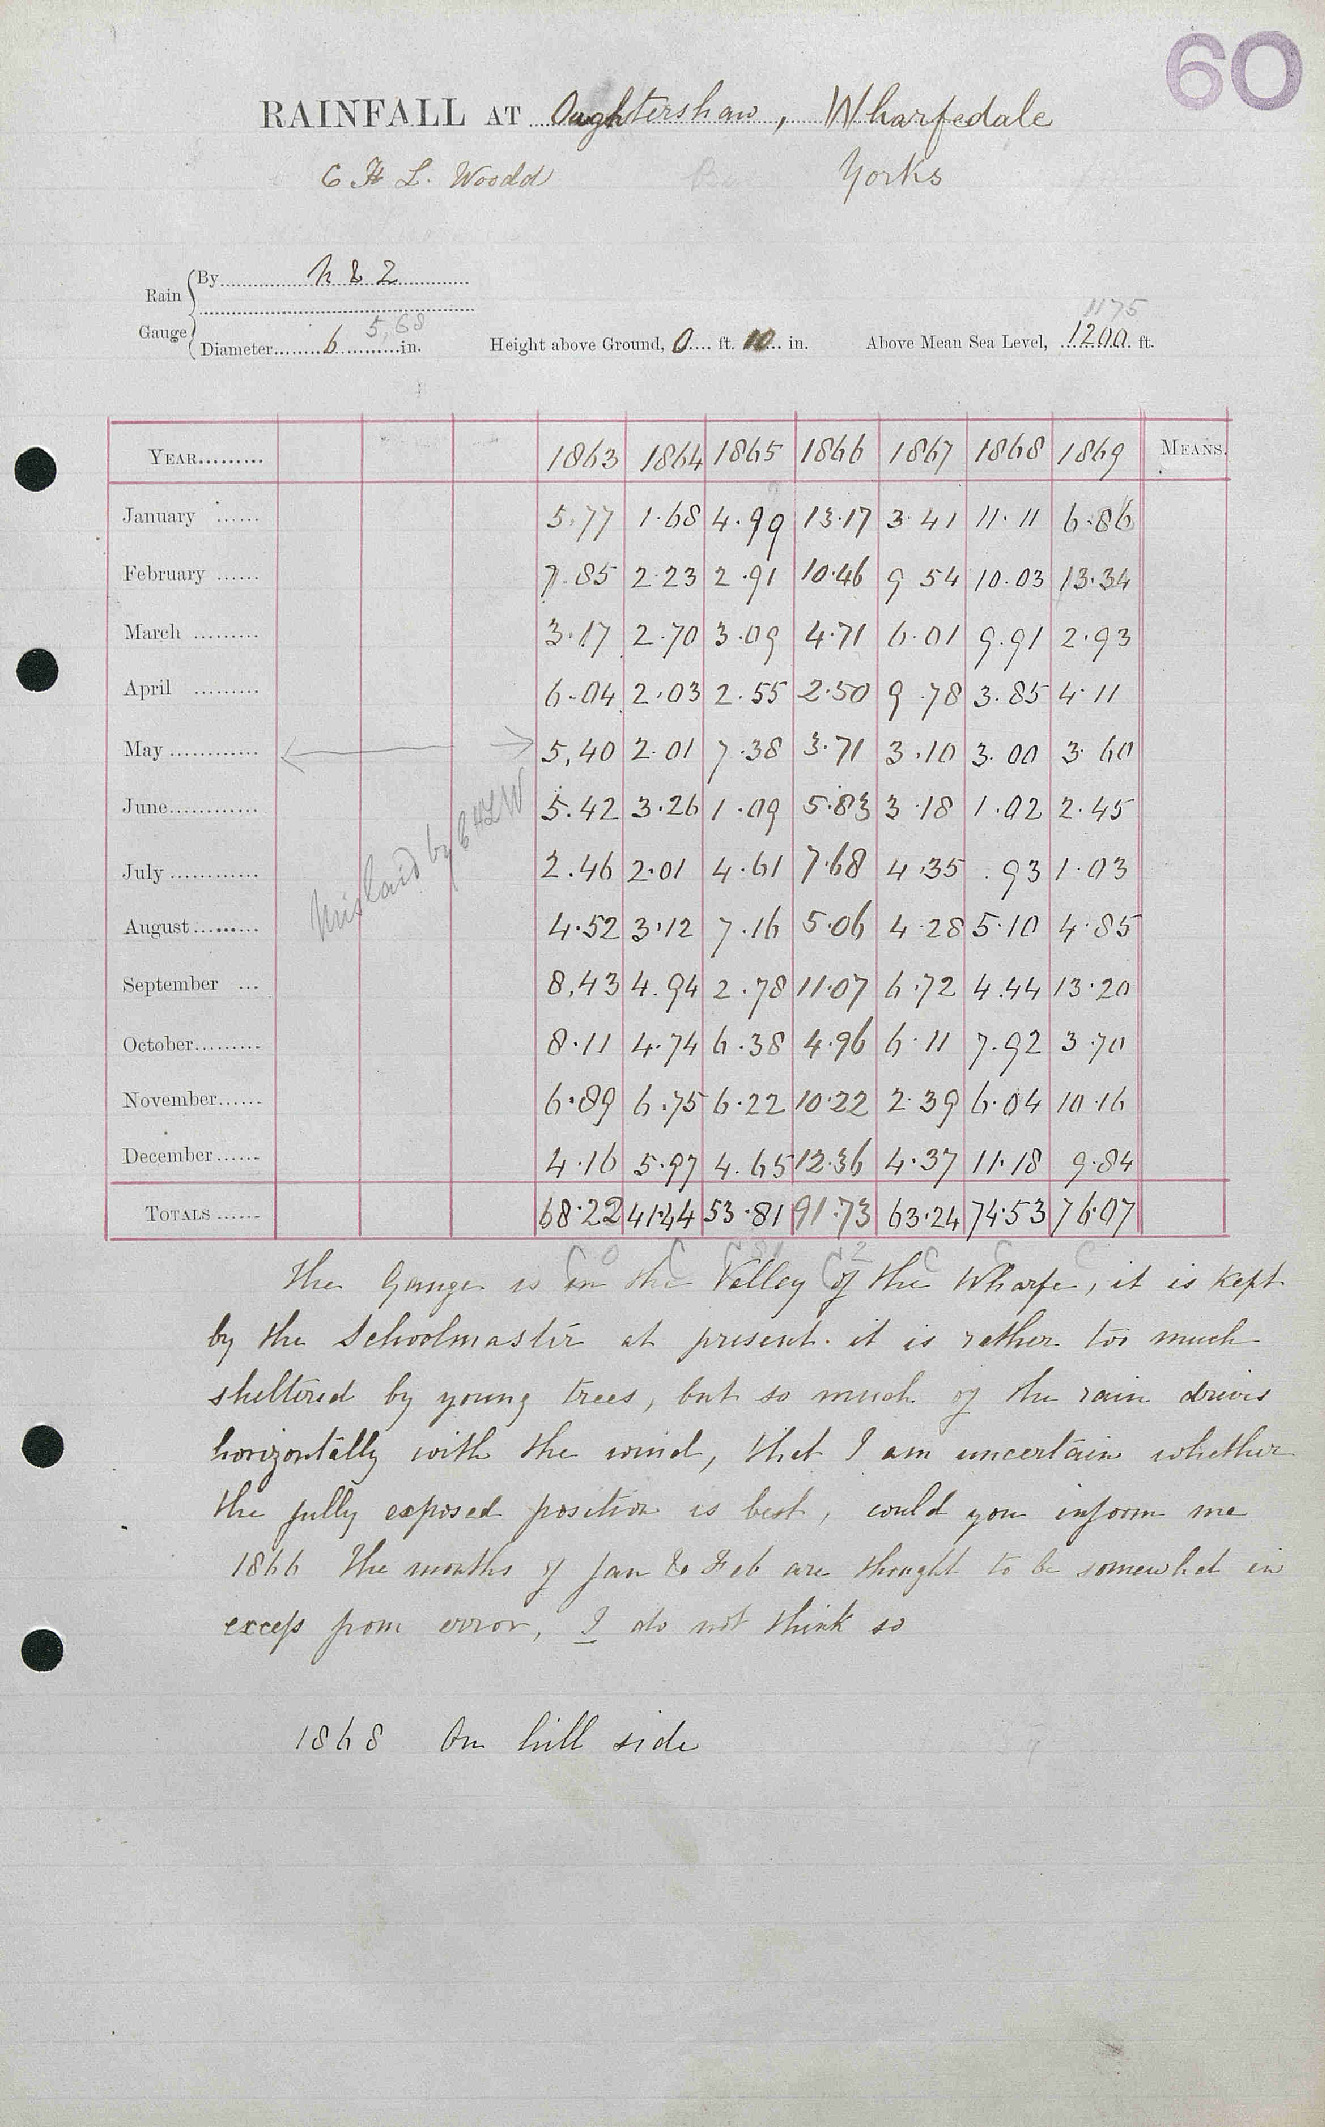 60
RAINFALL AT Oughtershaw, Wharfedale
C H L. Woodd Yorks
Rain Gauge By N & Z
1175
Diameter 6 in. 5,68 Height above Ground, 0 ft. 10 in. Above Mean Sea Level, 1200 ft.
YEAR 1863 1864 1865 1866 1867 1868 1869 MEANS.
January 5.77 1.68 4.99 13.17 3.41 11.11 6.86
February 7.85 2.23 2.91 10.46 9 54 10.03 13.34
March 3.17 2.70 3.09 4.71 6.01 9.91 2.93
April 6.04 2.03 2.55 2.50 9.78 3.85 4.11
May 5,40 2.01 7.38 3.71 3.10 3.00 3.60
June 5.42 3.26 1.09 5.83 3.18 1.02 2.45
July 2.46 2.01 4.61 7.68 4.35 .93 1.03
August 4.52 3.12 7.16 5.06 4.28 5.10 4.85
September 8,43 4.94 2.78 11.07 6.72 4.44 13.20
October 8.11 4.74 6.38 4.96 6.11 7.92 3.70
November 6.89 6.75 6.22 10.22 2.39 6.04 10.16
December 4.16 5.97 4.65 12.36 4.37 11.18 9.84
TOTALS 68.22 41.44 53.81 91.73 63.24 74.53 76.07
Mislaid by CHLW
The Gauge is in the Valley of the Wharfe, it is kept
by the Schoolmaster at present. it is rather too much
sheltered by young trees, but so much of the rain drives
horizontally with the wind, that I am uncertain whether
the fully exposed position is best, could you inform me
1866 The months of Jan & Feb are thought to be somewhat in
excess from error, I do not think so
1868 On hill side